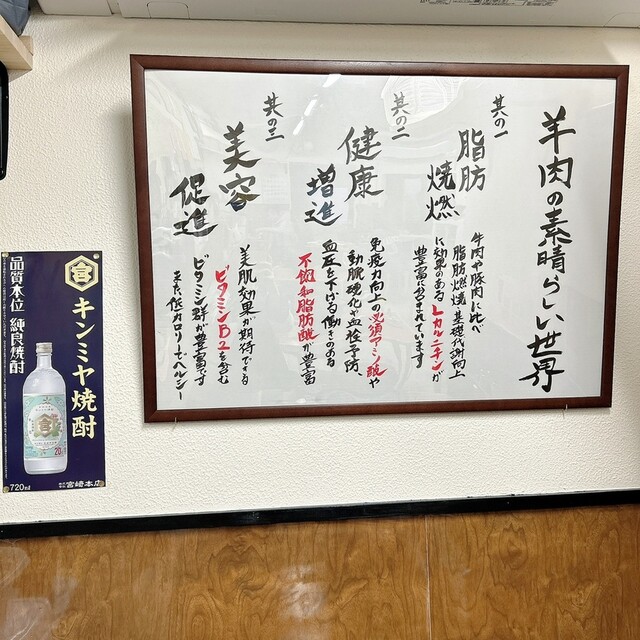 羊肉の素晴らしい世界
其の一
脂肪
燃焼
牛肉や豚肉に比べ
脂肪燃焼、基礎代謝向上
に効果のあるLカルニチンが
豊富に含まれています
其の二
健康
増進
免疫力向上の必須アミノ酸や
動脈硬化や血栓予防、
血圧を下げる働きのある
不飽和脂肪酸が豊富
其の三
美容
促進
美肌効果が期待できる
ビタミンB2を含む
ビタミン群が豊富です
また、低カロリーでヘルシー
宮
キンミヤ焼酎
品質本位 純良焼酎
宮
20
720ml
株式会社 宮崎本店